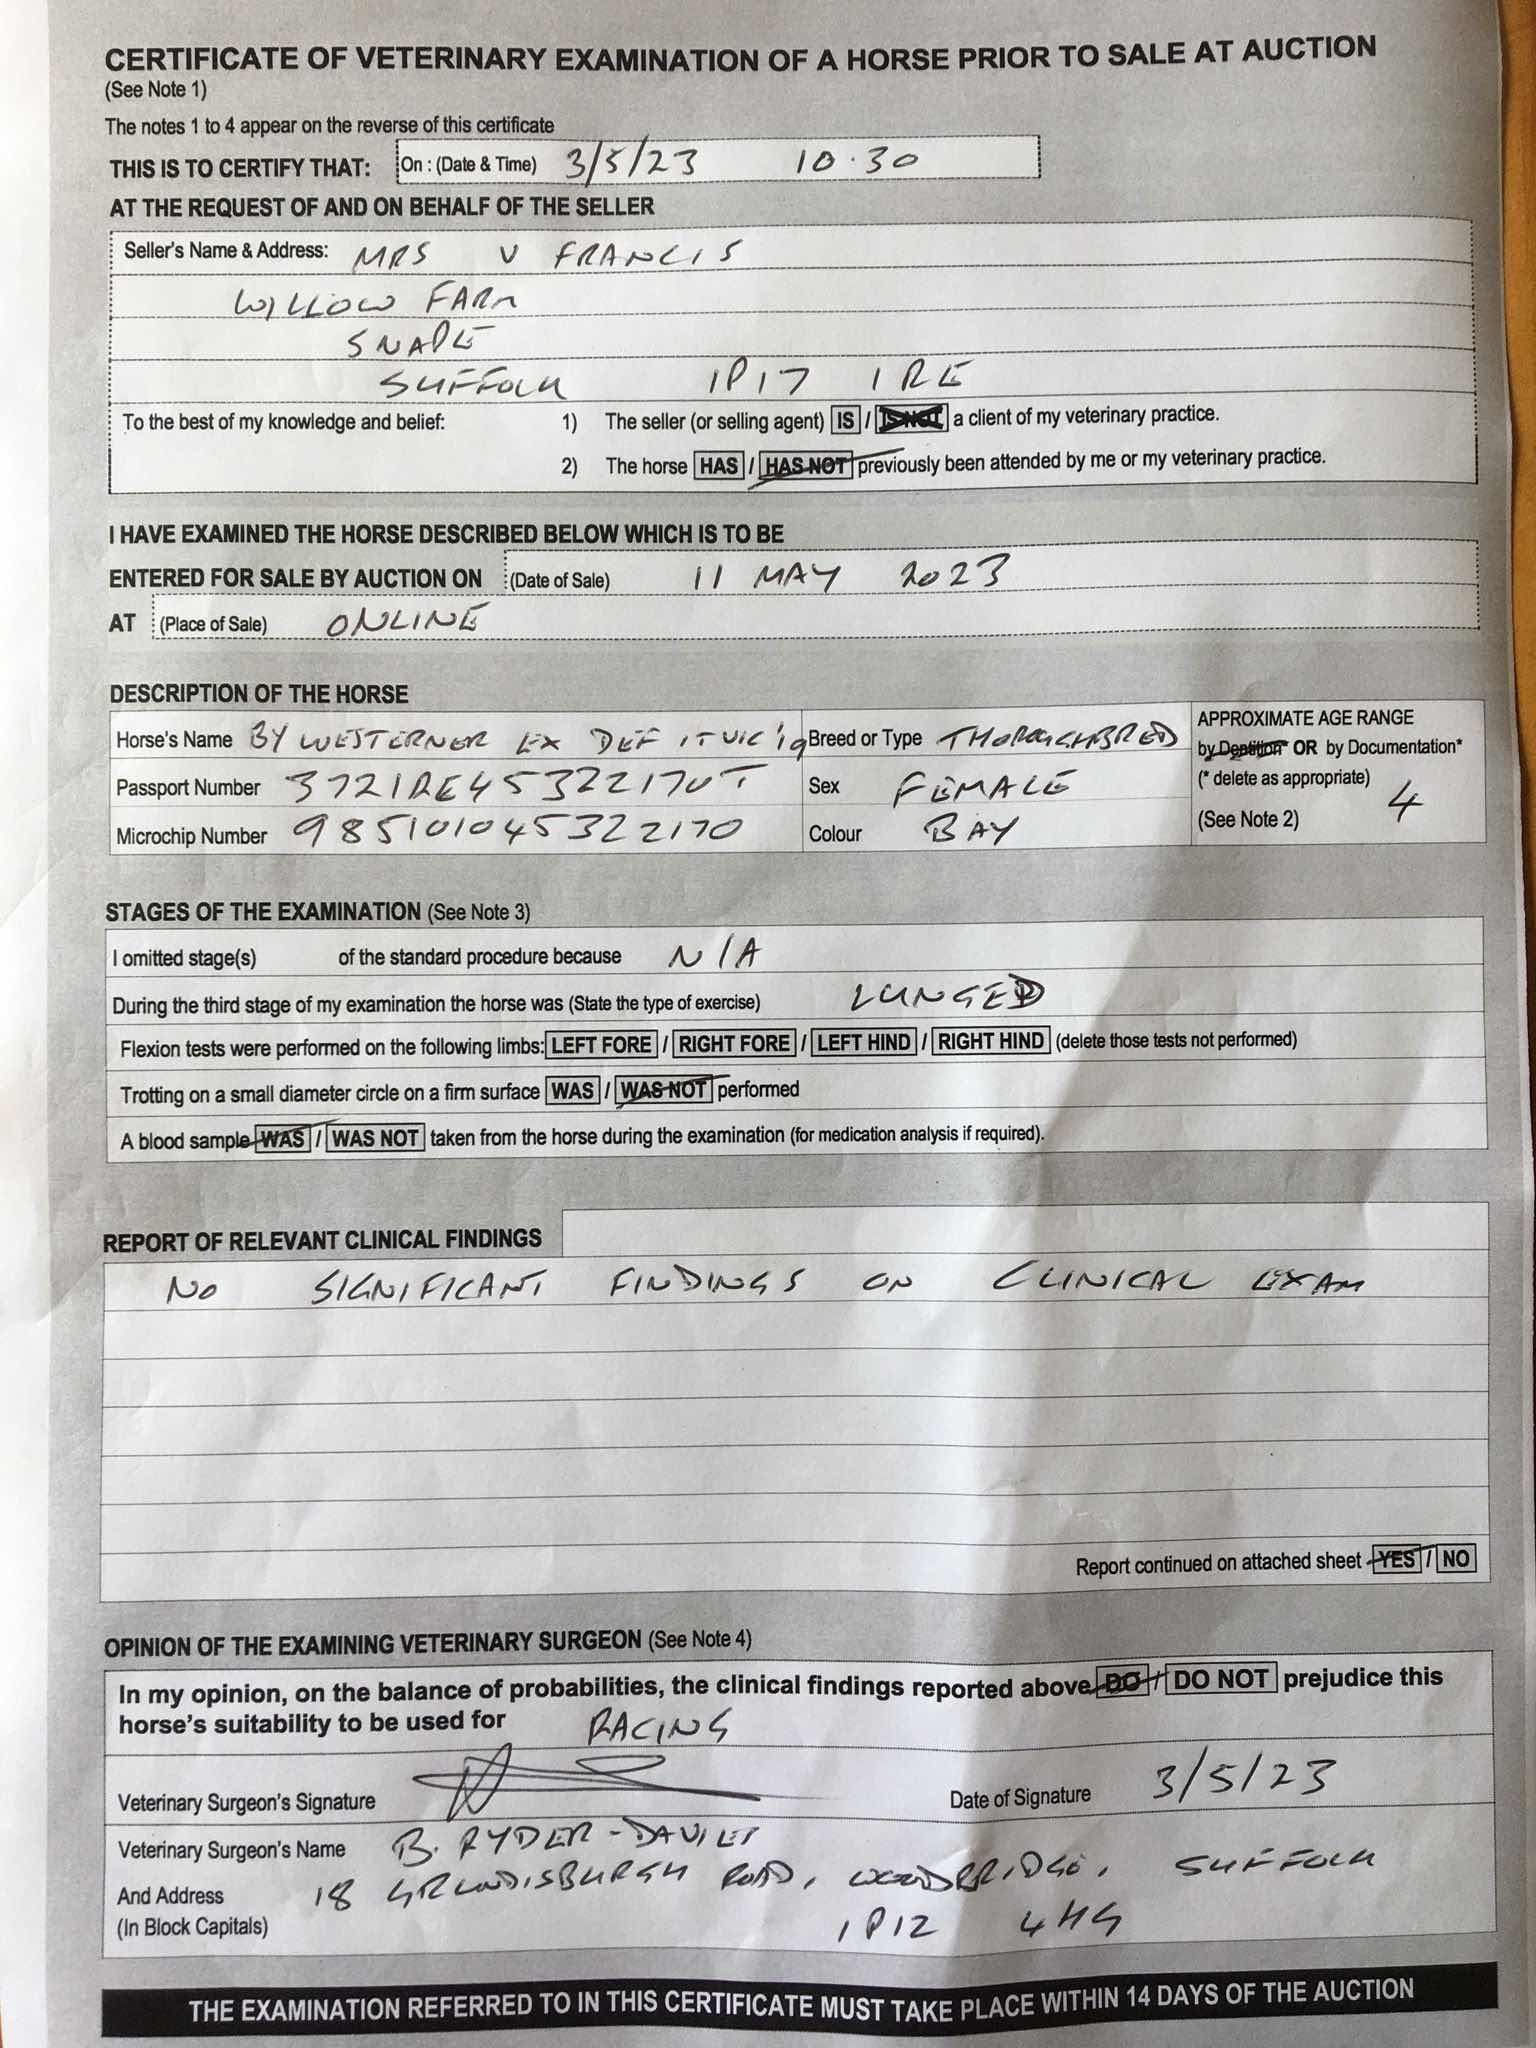 CERTIFICATE OF VETERINARY EXAMINATION OF A HORSE PRIOR TO SALE AT AUCTION
(See Note 1)
The notes 1 to 4 appear on the reverse of this certificate
THIS IS TO CERTIFY THAT: On : (Date & Time) 3/5/23 10.30
AT THE REQUEST OF AND ON BEHALF OF THE SELLER
Seller's Name & Address: MRS V FRANCIS
WILLOW FARM
SNAPE
SUFFOLK IP17 1RE
To the best of my knowledge and belief: 1) The seller (or selling agent) IS / IS NOT a client of my veterinary practice.
2) The horse HAS / HAS NOT previously been attended by me or my veterinary practice.
I HAVE EXAMINED THE HORSE DESCRIBED BELOW WHICH IS TO BE
ENTERED FOR SALE BY AUCTION ON (Date of Sale) 11 MAY 2023
AT (Place of Sale) ONLINE
DESCRIPTION OF THE HORSE
Horse's Name BY WESTERNER EX DEF IT VIC '19 Breed or Type THOROUGHBRED
Passport Number 372IRE45322170T Sex FEMALE
Microchip Number 985101045322170 Colour BAY
APPROXIMATE AGE RANGE
by Dentition* OR by Documentation*
(* delete as appropriate)
(See Note 2) 4
STAGES OF THE EXAMINATION (See Note 3)
I omitted stage(s) of the standard procedure because N/A
During the third stage of my examination the horse was (State the type of exercise) LUNGED
Flexion tests were performed on the following limbs: LEFT FORE / RIGHT FORE / LEFT HIND / RIGHT HIND (delete those tests not performed)
Trotting on a small diameter circle on a firm surface WAS / WAS NOT performed
A blood sample WAS / WAS NOT taken from the horse during the examination (for medication analysis if required).
REPORT OF RELEVANT CLINICAL FINDINGS
NO SIGNIFICANT FINDINGS ON CLINICAL EXAM
Report continued on attached sheet YES / NO
OPINION OF THE EXAMINING VETERINARY SURGEON (See Note 4)
In my opinion, on the balance of probabilities, the clinical findings reported above DO / DO NOT prejudice this
horse's suitability to be used for RACING
Veterinary Surgeon's Signature Date of Signature 3/5/23
Veterinary Surgeon's Name B. RYDER-DAVIES
And Address 18 GRUNDISBURGH ROAD, WOODBRIDGE, SUFFOLK
(In Block Capitals) IP12 4HG
THE EXAMINATION REFERRED TO IN THIS CERTIFICATE MUST TAKE PLACE WITHIN 14 DAYS OF THE AUCTION